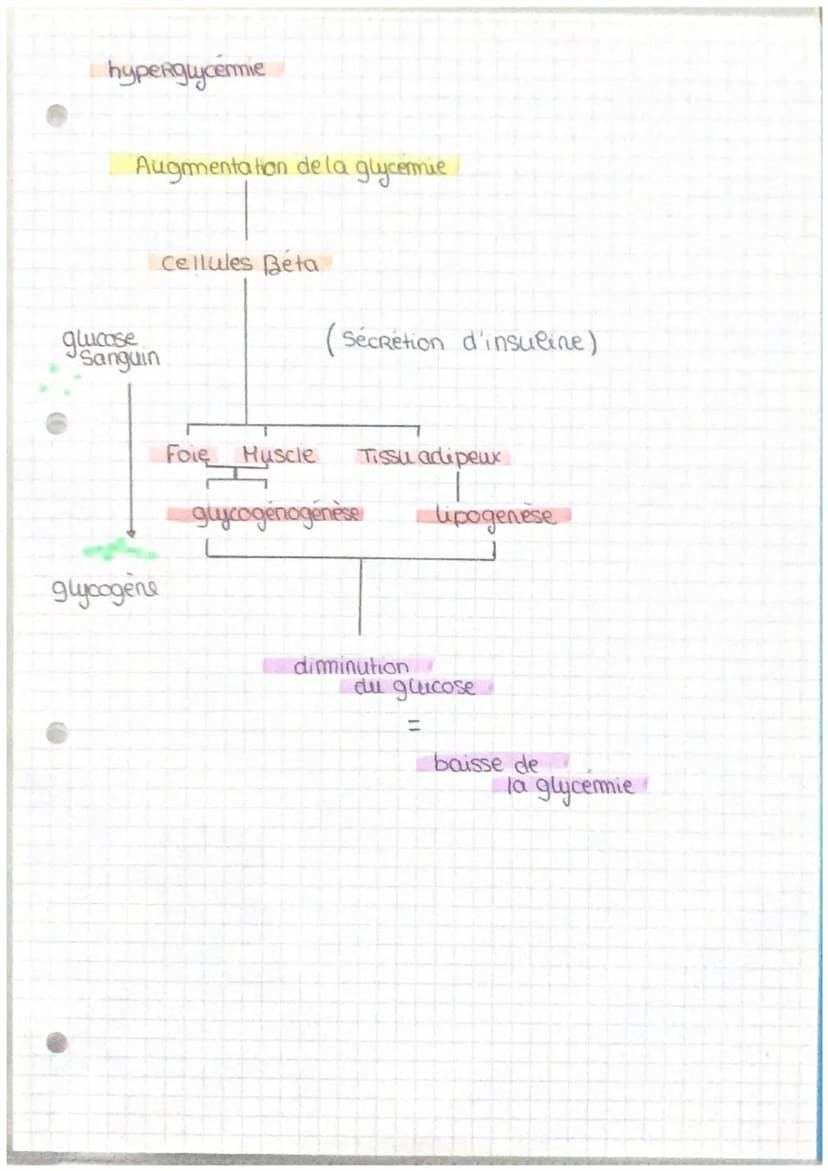 hyperglycémie
Augmentation de la glycémie
Cellules Béta
glucose
sanguin
(Sécrétion d'insuline)
Foie Muscle Tissu adipeux
glycogénogénèse lipogenèse
glycogène
diminution
du glucose
=
baisse de
la glycémie